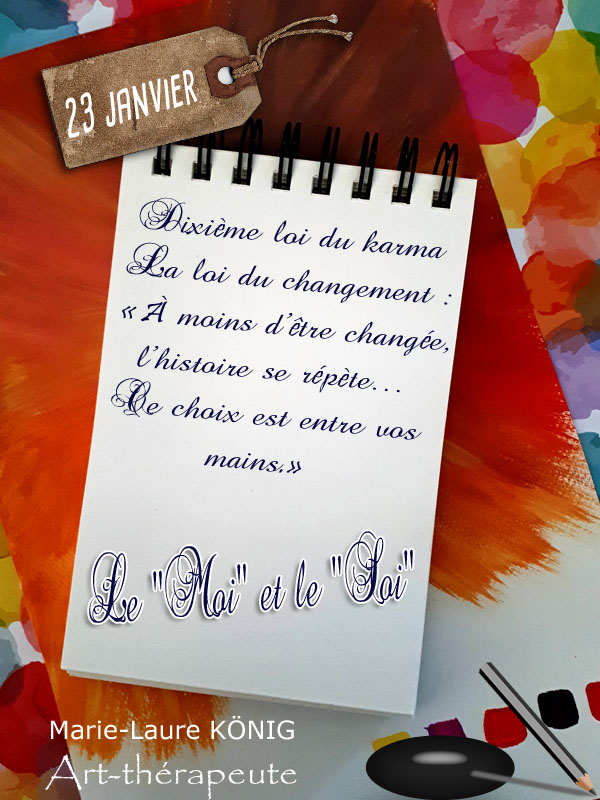 23 JANVIER
Dixième loi du karma
La loi du changement :
« À moins d'être changée,
l'histoire se répète...
Le choix est entre vos
mains.»
Le "Moi" et le "Soi"
Marie-Laure KÖNIG
Art-thérapeute